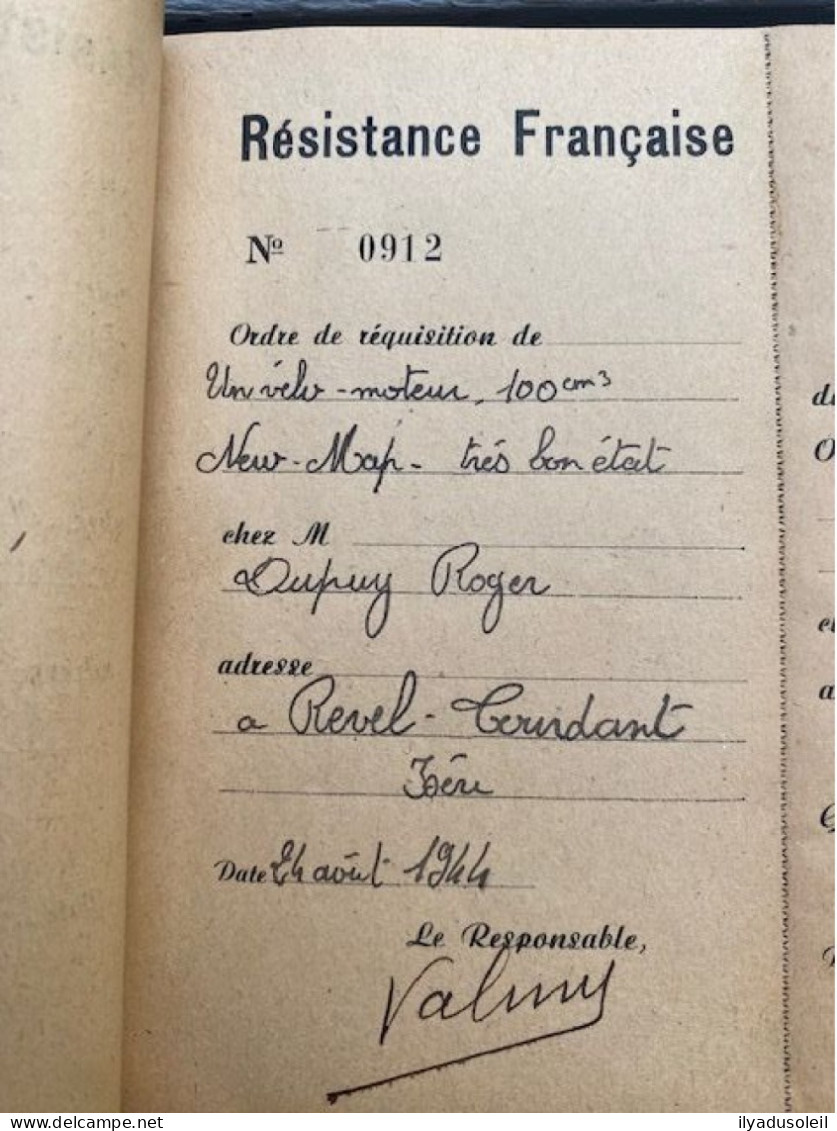 Résistance Française
Nº 0912
Ordre de réquisition de
Un vélo-moteur. 100 cm3
New-Map- très bon état
chez M
Dupuy Roger
adresse
a Revel-Tourdant
Isère
Date 24 août 1944
Le Responsable,
Valmy
delcampe.net
ilyadusoleil